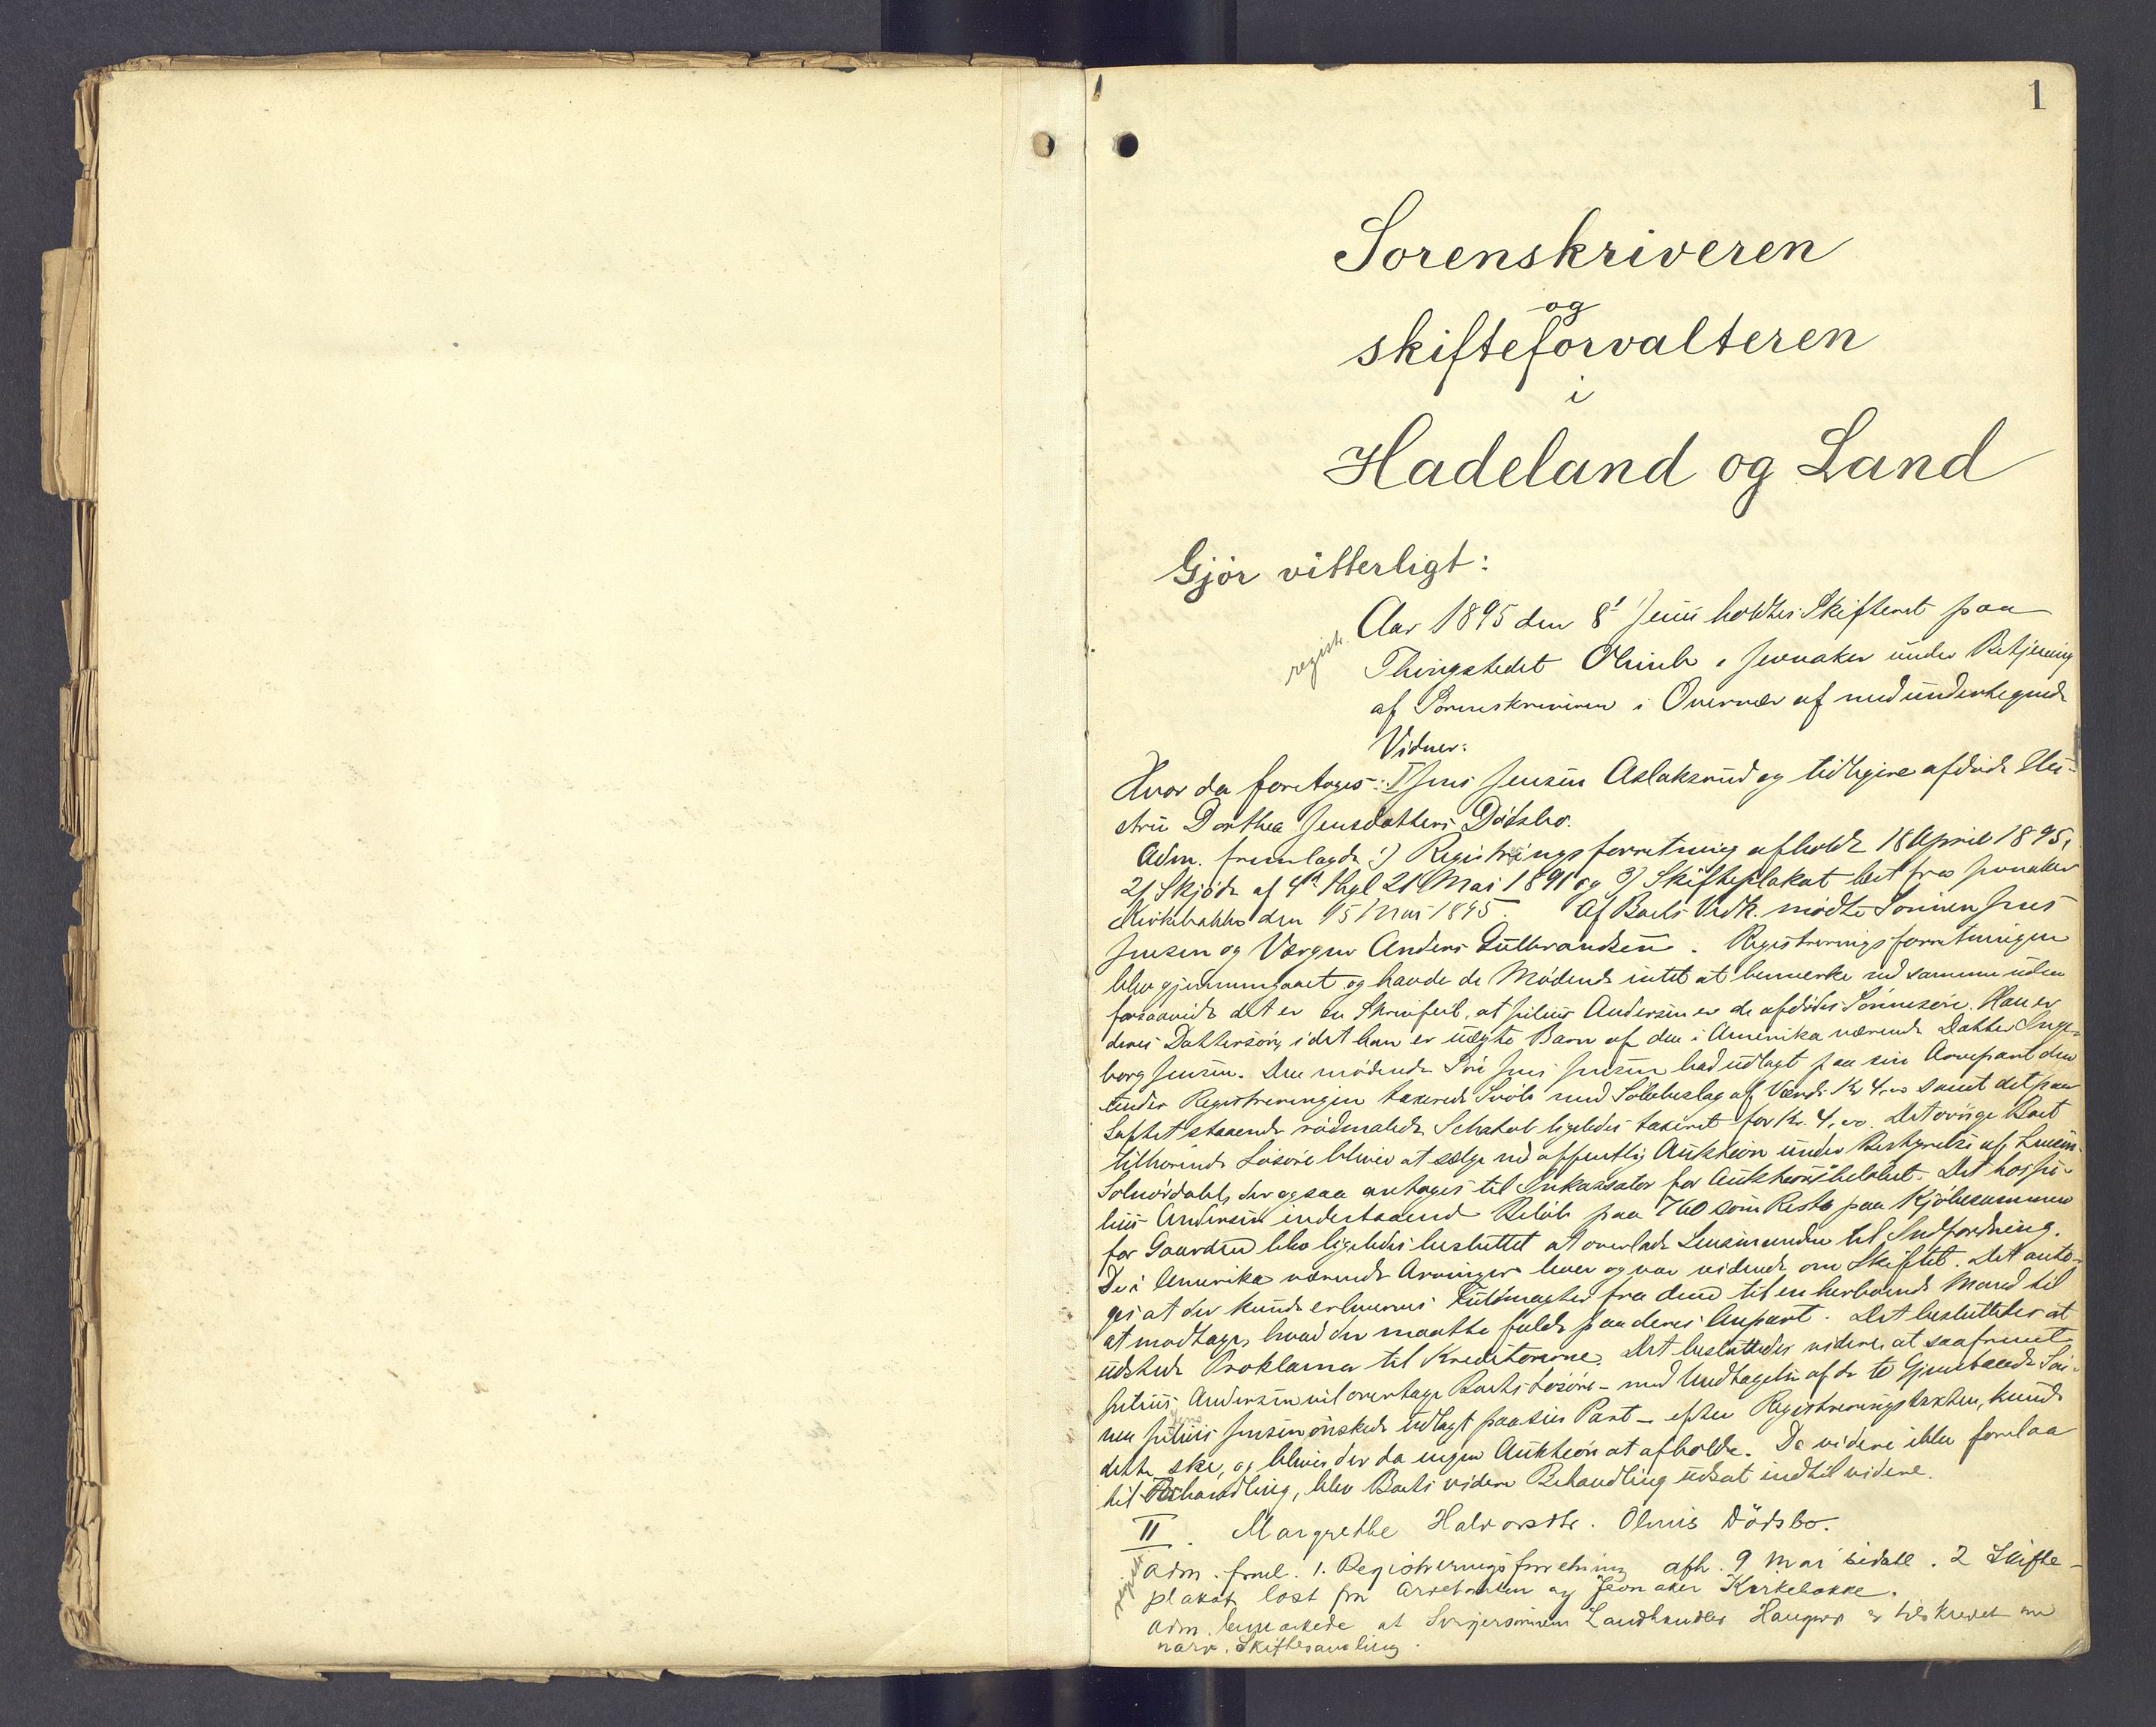 1
Sorenskriveren
og
skifteforvalteren
i
Hadeland og Land
Gjør vitterligt:
registr.
Aar 1895 den 8' Juni holdtes Skifteret paa
Thingstedet Olimb i Jevnaker under Betjening
af Sorenskriveren i Overvær af medundertegnede
Vidner:
Hvor da foretoges: I Jens Jensen Aslaksrud og tidligere afdøde Hu-
stru Dorthea Jensdatters Dødsbo.
Adm. fremlagde 1) Registreringsforretning afholdt 18 April 1895,
2) Skjøde af 4de thgl 21 Mai 1891 og 3) Skifteplakat læst fra Jevnaker
Kirkebakke den 15 Mai 1895. Af Boets Vedk. mødte Sønnen Jens
Jensen og Værgen Anders Gulbrandsen. Registreringsforretningen
blev gjennemgaaet og havde de Mødende intet at bemærke ved samme uden
forsaavidt det er en Skrivfeil, at Julius Andersen er de afdødes Sønnesøn. Han er
deres Dattersøn, idet han er uægte Barn af den i Amerika værende Datter Inge-
borg Jensen. Den mødende Søn Jens Jensen bad udlagt paa sin Arvepart den
under Registreringen taxerede Svøbe med Sølvbeslag af Værdi Kr 4,00 samt det paa
Loftet staaende rødmalede Schatol ligeledes taxeret for Kr. 4,00. Det øvrige Boet
tilhørende Løsøre bliver at sælge ved offentlig Auktion under Bestyrelse af Lensm.
Solnørdahl, der ogsaa antoges til Inkassator for Auktionsbeløbet. Det hos Ju-
lius Andersen indestaaende Beløb paa 760 som Rest paa Kjøbesummen
for Gaarden blev ligeledes besluttet at overlade Lensmanden til Indfordring.
De i Amerika værende Arvinger lever og var vidende om Skiftet. Det anto-
ges at der kunde erhverves Fuldmagter fra dem til en herboende Mand til
at modtage, hvad der maatte falde paa deres Anpart. Det besluttedes at
udstede Proklama til Kreditorerne. Det besluttedes videre, at saafremt
Julius Andersen vil overtage Boets Løsøre - med Undtagelse af de to Gjenstande Søn-
nen Jens Jensen ønskede udlagt paa sin Part - efter Registreringstaxten, kunde
dette ske, og bliver der da ingen Auktion at afholde. Da videre ikke forelaa
til Behandling, blev Boets videre Behandling udsat indtil videre.
II. Margrethe Halvorsdtr. Olmis Dødsbo.
Adm. freml. 1. Registreringsforretning afh. 9 Mai sidstl. 2 Skifte-
plakat læst fra Jevnaker Kirkebakke.
Adm. bemærkede at Svigersønnen Landhandler er tilskrevet om
nærv. Skiftesamling.